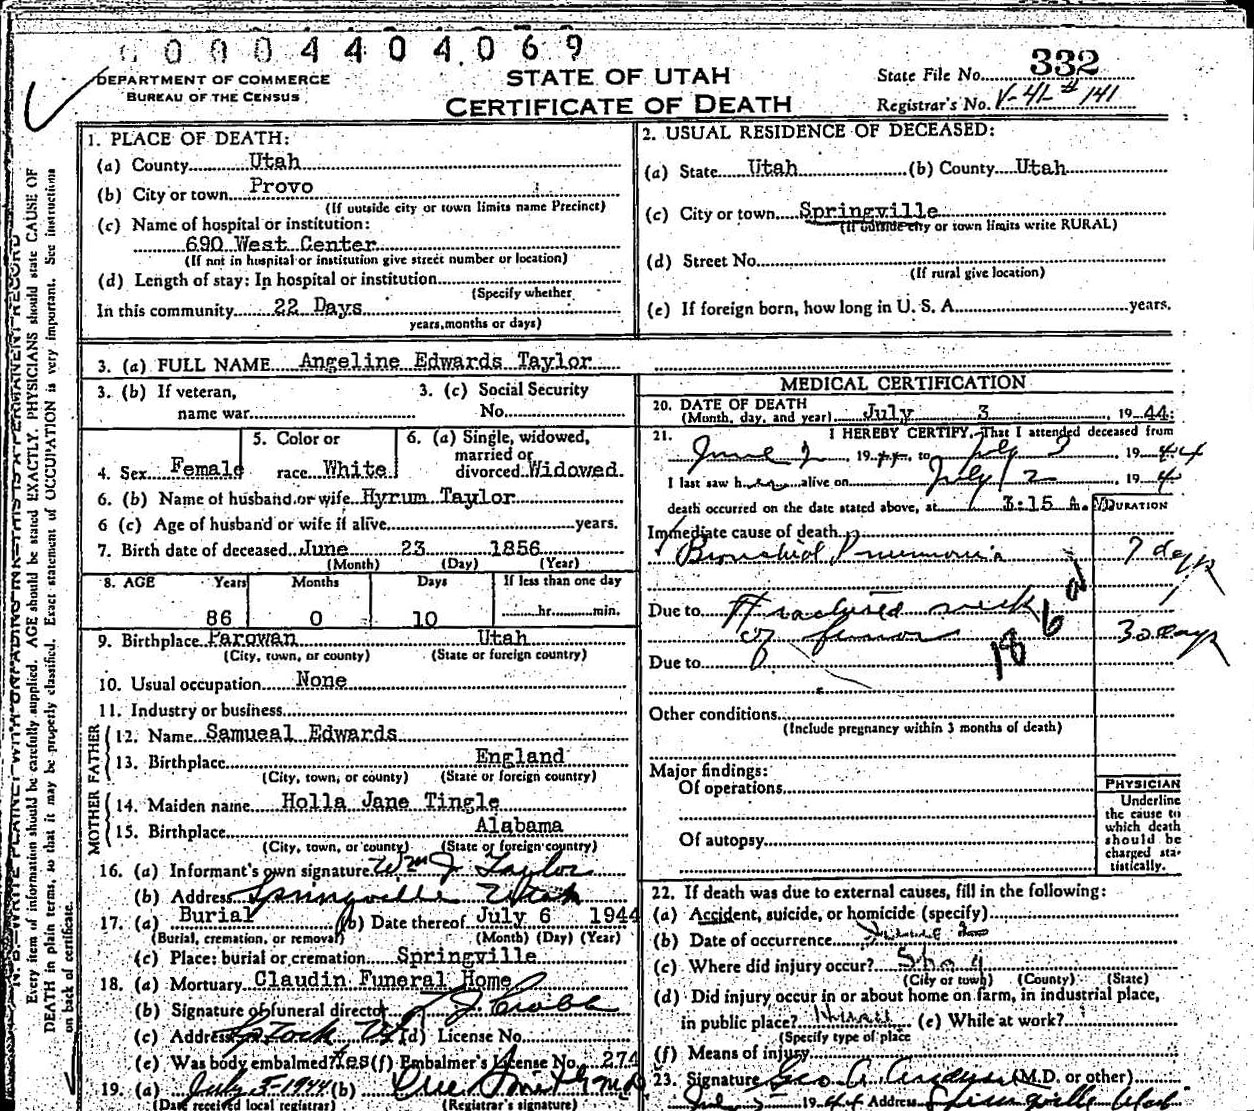 0 0 0 0 4 4 0 4 0 6 9
DEPARTMENT OF COMMERCE
BUREAU OF THE CENSUS
STATE OF UTAH
CERTIFICATE OF DEATH
State File No. 332
Registrar's No. V-41-#141
1. PLACE OF DEATH:
(a) County Utah
(b) City or town Provo
(If outside city or town limits name Precinct)
(c) Name of hospital or institution:
690 West Center
(If not in hospital or institution give street number or location)
(d) Length of stay: In hospital or institution
(Specify whether
In this community 22 Days
years, months or days)
2. USUAL RESIDENCE OF DECEASED:
(a) State Utah (b) County Utah
(c) City or town Springville
(If outside city or town limits write RURAL)
(d) Street No.
(If rural give location)
(e) If foreign born, how long in U. S. A. years.
3. (a) FULL NAME Angeline Edwards Taylor
3. (b) If veteran,
name war
3. (c) Social Security
No.
4. Sex Female
5. Color or
race White
6. (a) Single, widowed,
married or
divorced Widowed
6. (b) Name of husband or wife Hyrum Taylor
6 (c) Age of husband or wife if alive years.
7. Birth date of deceased June 23 1856
(Month) (Day) (Year)
8. AGE Years Months Days If less than one day
86 0 10 hr. min.
9. Birthplace Parowan Utah
(City, town, or county) (State or foreign country)
10. Usual occupation None
11. Industry or business
FATHER
12. Name Samueal Edwards
13. Birthplace England
(City, town, or county) (State or foreign country)
MOTHER
14. Maiden name Holla Jane Tingle
15. Birthplace Alabama
(City, town, or county) (State or foreign country)
16. (a) Informant's own signature Wm J Taylor
(b) Address Springville Utah
17. (a) Burial (b) Date thereof July 6 1944
(Burial, cremation, or removal) (Month) (Day) (Year)
(c) Place: burial or cremation Springville
18. (a) Mortuary Claudin Funeral Home
(b) Signature of funeral director
(c) Address (d) License No.
(e) Was body embalmed? Yes (f) Embalmer's License No. 274
19. (a) July 5-1944 (b)
(Date received local registrar) (Registrar's signature)
MEDICAL CERTIFICATION
20. DATE OF DEATH
(Month, day, and year) July 3, 1944
21. I HEREBY CERTIFY, That I attended deceased from
June 2 1944 to July 3 1944
I last saw her alive on July 2 194
death occurred on the date stated above, at 3:15 A. M
DURATION
Immediate cause of death
Bronchial Pneumonia 7 days
Due to Fractured neck
of femur 30 days
186a
Due to
Other conditions
(Include pregnancy within 3 months of death)
Major findings:
Of operations
Of autopsy
PHYSICIAN
Underline
the cause to
which death
should be
charged sta-
tistically.
22. If death was due to external causes, fill in the following:
(a) Accident, suicide, or homicide (specify)
(b) Date of occurrence June
(c) Where did injury occur?
(City or town) (County) (State)
(d) Did injury occur in or about home on farm, in industrial place,
in public place? (e) While at work?
(Specify type of place
(f) Means of injury
23. Signature Geo A. (M.D. or other)
1944 Address Springville Utah
N. B.—WRITE PLAINLY WITH UNFADING INK—THIS IS A PERMANENT RECORD
Every item of information should be carefully supplied. AGE should be stated EXACTLY. PHYSICIANS should state CAUSE OF
DEATH in plain terms, so that it may be properly classified. Exact statement of OCCUPATION is very important. See instructions
on back of certificate.